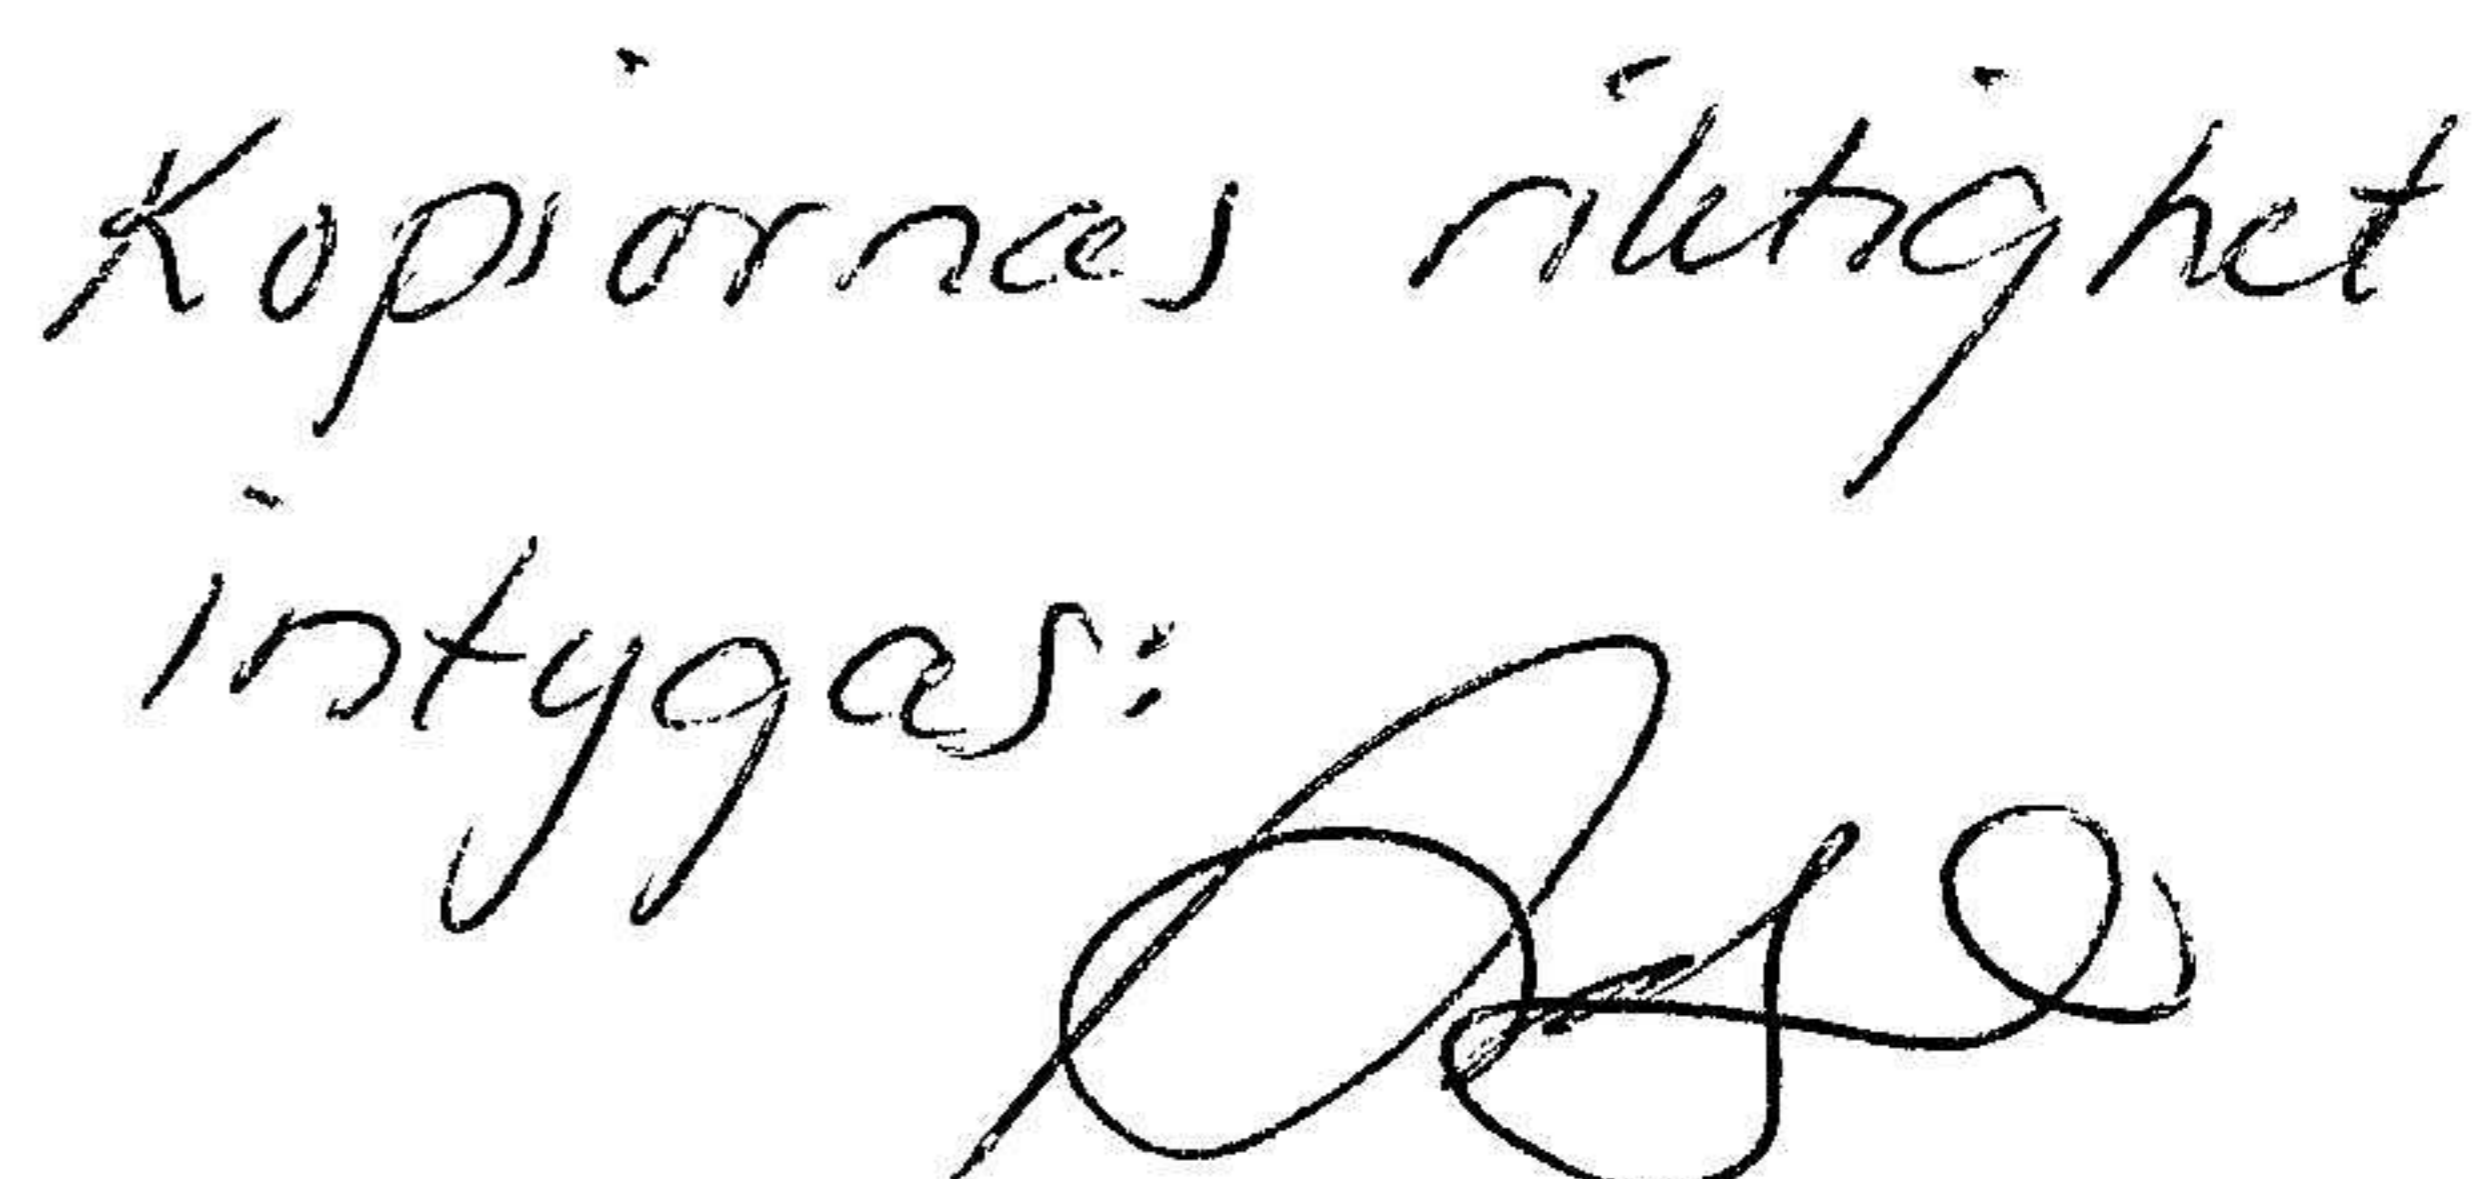 Kopiornas riktighet
intygas: